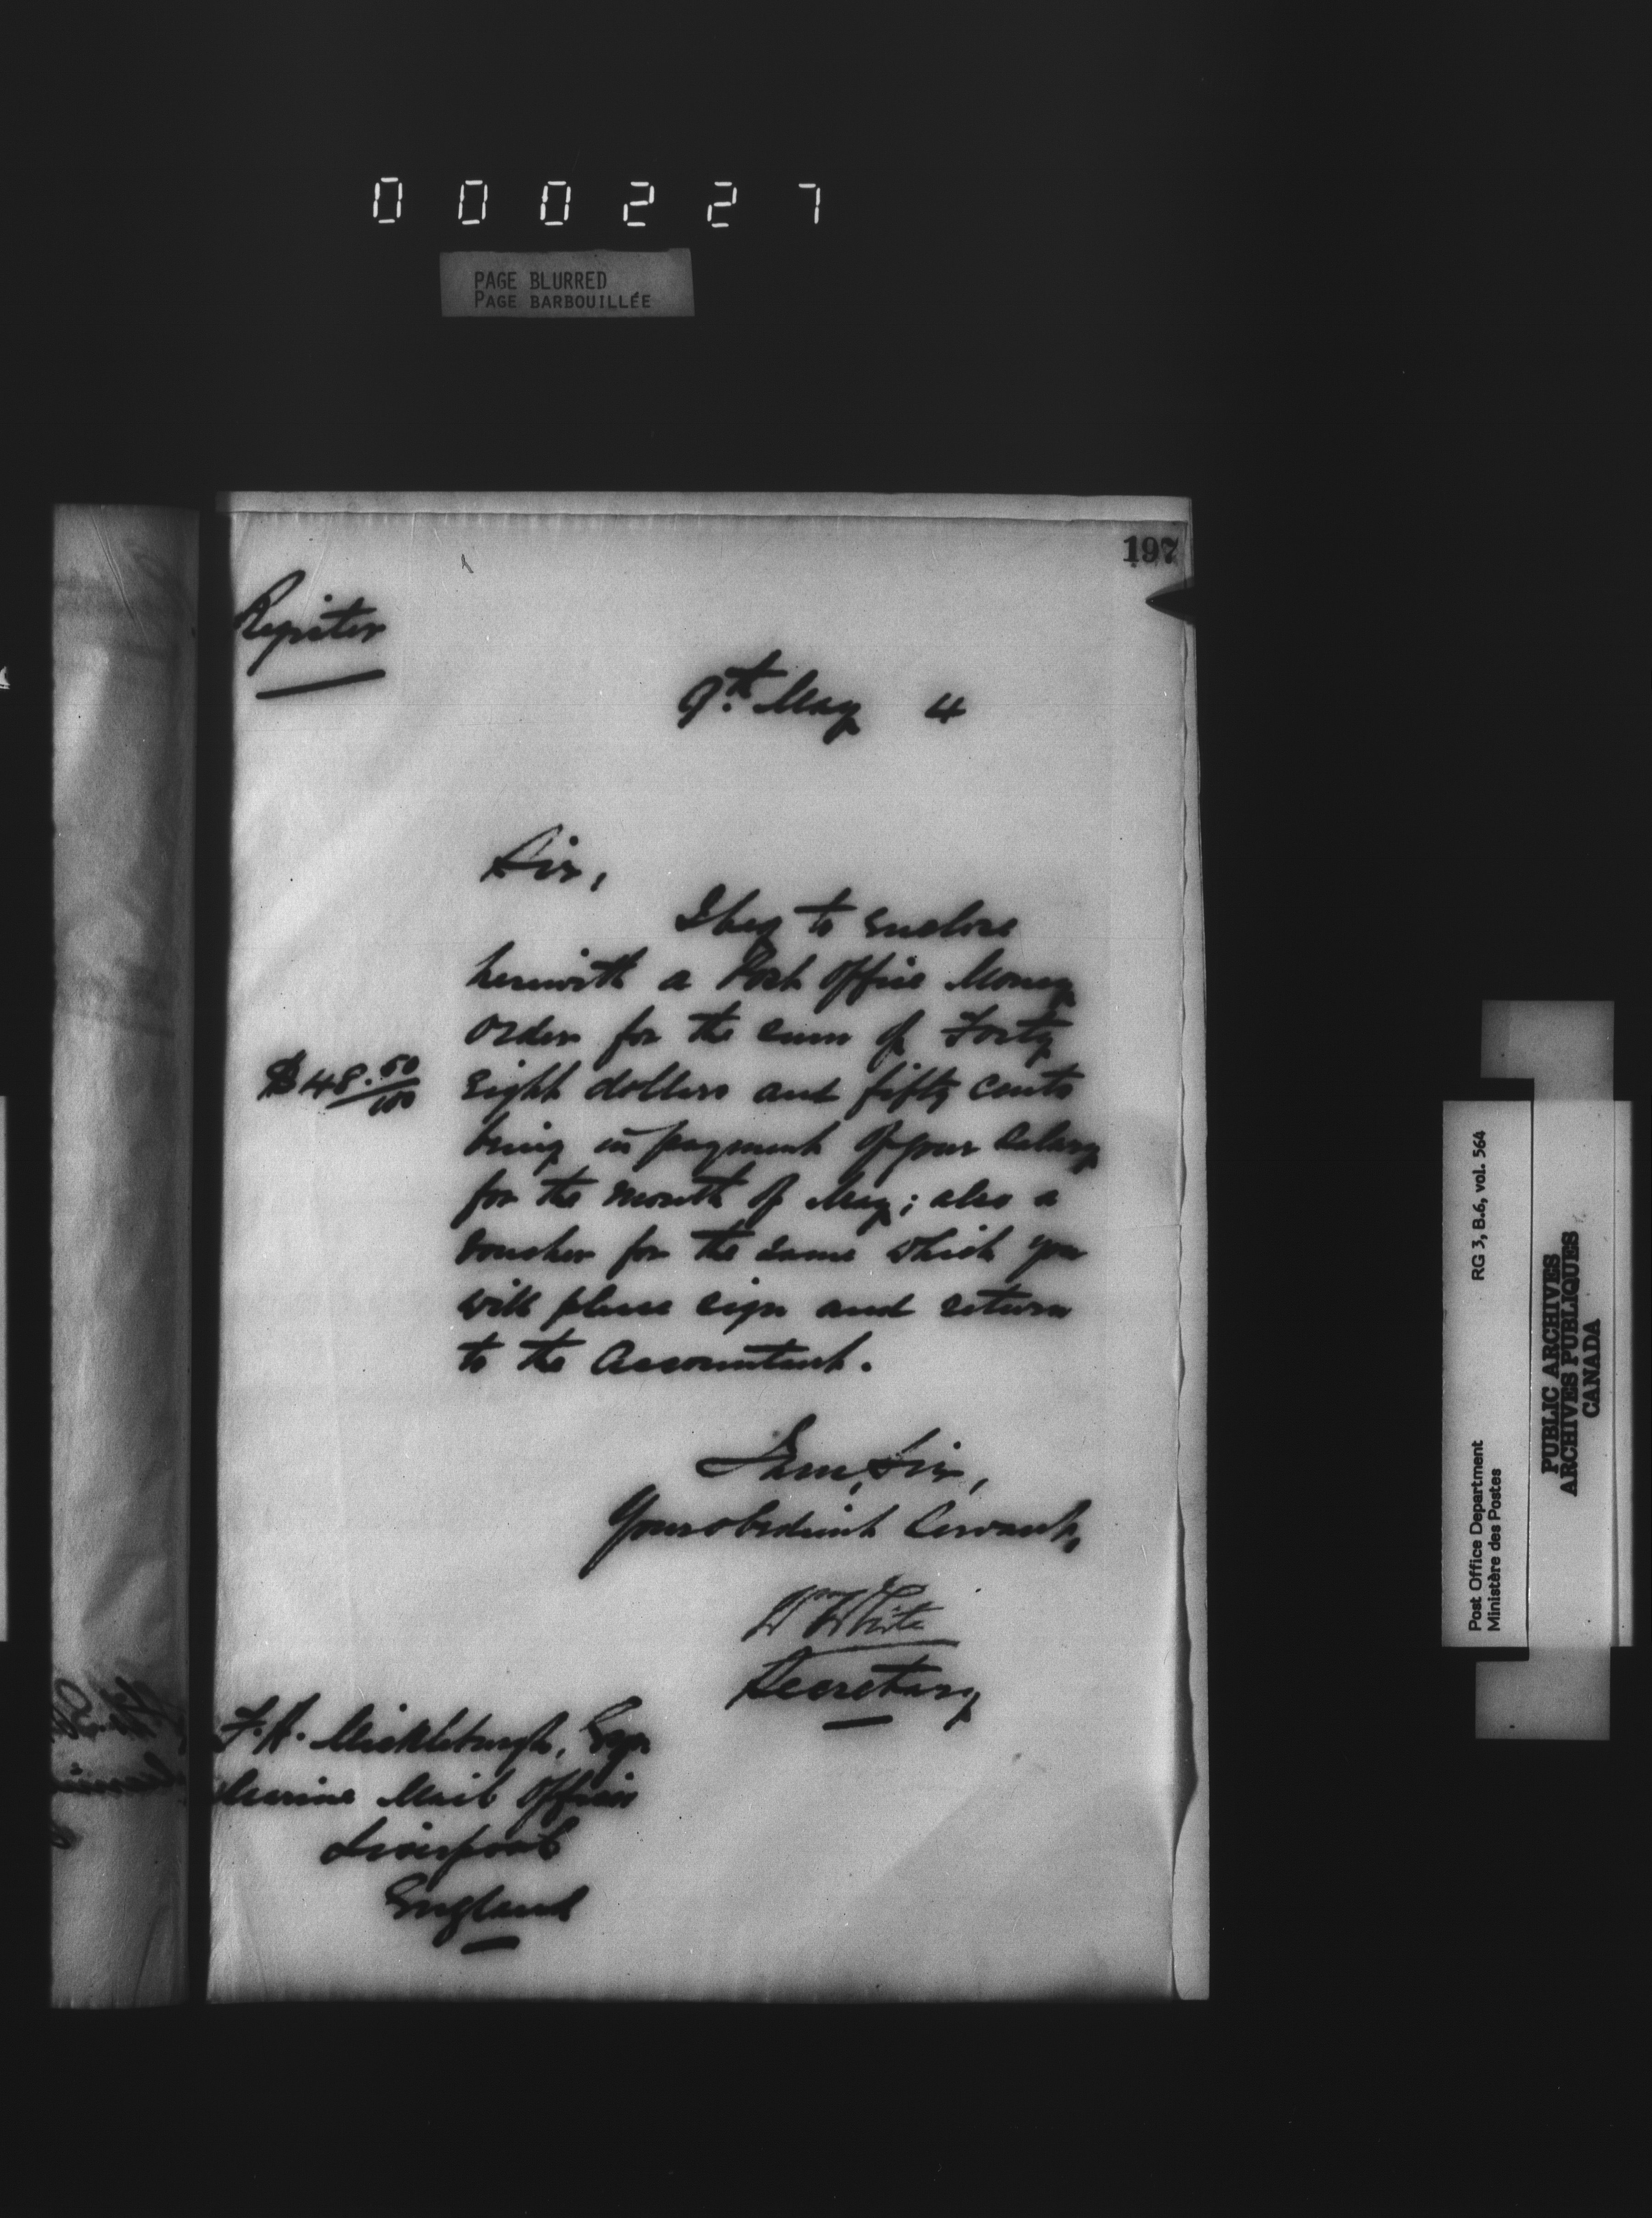 000227
PAGE BLURRED
PAGE BARBOUILLÉE
197
Register
9th. May 4
Sir,
I beg to enclose
herewith a Post Office Money
Order for the sum of Forty
$48.50/100
eight dollars and fifty cents
being in payment of your Salary
for the month of May; also a
voucher for the same which you
will please sign and return
to the Accountant.
I am, Sir,
Your obedient Servant,
Wm White
Secretary
F. A. Mickleburgh, Esqr.
Marine Mail Officer
Liverpool
England
Post Office Department
Ministère des Postes
RG 3, B.6, vol. 564
PUBLIC ARCHIVES
ARCHIVES PUBLIQUES
CANADA